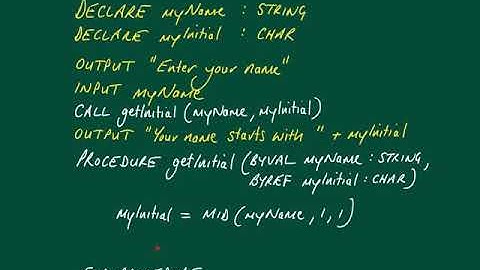 DECLARE myName : STRING
DECLARE myInitial : CHAR
OUTPUT "Enter your name"
INPUT myName
CALL getInitial (myName, myInitial)
OUTPUT "Your name starts with " + myInitial
PROCEDURE getInitial (BYVAL myName : STRING,
BYREF myInitial : CHAR)
myInitial = MID (myName, 1, 1)